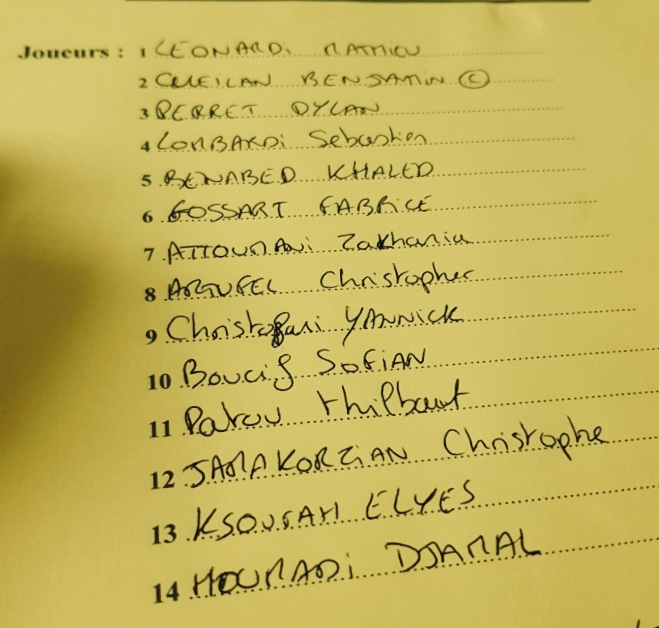 Joueurs : 1 LEONARDi MATHIEU
2 CUEILAN BENJAMIN ©
3 PERRET DYLAN
4 LOMBARDi Sebastien
5 BENABED KHALED
6 GOSSART FABRICE
7 ATTOUMANi Zakharia
8 ARTUFEL Christopher
9 Christofari YANNICK
10 Boucif SOFiAN
11 Patou thilbaut
12 JAMAKORZiAN Christophe
13 ELYES
14 HOUMADi DJAMAL